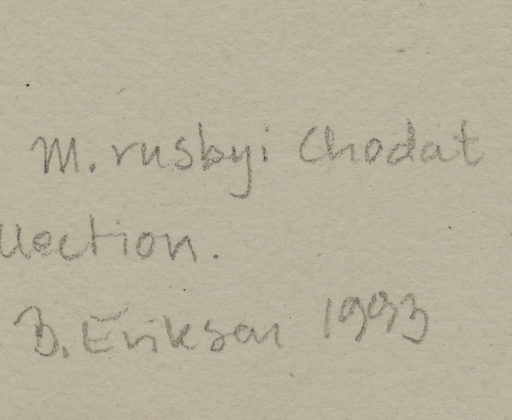 M. rusbyi Chodat
llection.
B. Eriksen 1993